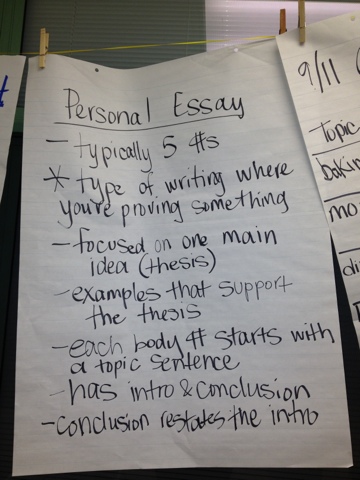 Personal Essay
- typically 5 ¶s
* type of writing where
you're proving something
- focused on one main
idea (thesis)
- examples that support
the thesis
- each body ¶ starts with
a topic sentence
- has intro & conclusion
- conclusion restates the intro
9/11
topic